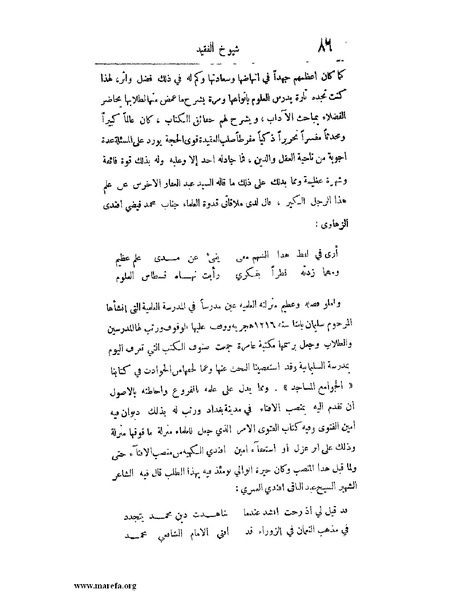 ٨٦ شيوخ الفقيد
كما كان اعظمهم جهداً في انهاضها وسعادتها وكم له في ذلك فضل واثر، لهذا
كنت تجده تارة يدرس العلوم بأنواعها ومرة يشرح ما غمض منها لطلابها يحاضر
الفضلاء بمباحث الآداب، ويشرح لهم حقائق الكتاب، كان عالماً كبيراً
ومحدثاً مفسراً نحريراً ذكياً مفرط صلب العقيدة قوى الحجة يورد على المسئلة عدة
اجوبة من ناحية العقل والدين، فما جادله احد إلا وغلبه وله بذلك قوة فائقة
وشهرة عظيمة ومما يدلك على ذلك ما قاله السيد عبد الغفار الاخرس عن علم
هذا الرجل الكبير، قال لدى ملاقاتى قدوة العلماء جناب محمد فيضي افندى
الزهاوى :
أرى في لفظ هذا الشهم معنى ينبئ عن مدى علم عظيم
ومهما زدته نظراً بفكري رأيت نهاه قسطاس العلوم
ولعلو فضله وعظيم منزلته العلمية عين مدرساً في المدرسة العلمية التى انشأها
المرحوم سليمان باشا سنة ١٢١٦ هجرية ووقف عليها الوقوف ورتب لها المدرسين
والطلاب وجعل برسمها مكتبة عامرة جمعت صنوف الكتب التي تعرف اليوم
بمدرسة السليمانية وقد استقصينا البحث عنها وعما لحقها من الحوادث في كتابنا
« الجوامع المساجد » . ومما يدل على علمه بالفروع واحاطته بالاصول
ان تقدم اليه بمنصب الافتاء في مدينة بغداد ورتب له بذلك ديوان فيه
امين الفتوى وفيه كتاب الفتوى الامر الذي جعل للعلماء منزلة ما فوقها منزلة
وذلك على اثر عزل أو استعفاء امين افندي الكهيه من منصب الافتاء حتى
ولما قبل هذا المنصب وكان حيرة الوالي يومئذ فيه بهذا الطلب قال فيه الشاعر
الشهير الشيخ عبد الباقى افندي العمري :
قد قيل لي اذ رحت انشد عندما شاهدت دين محمد يتجدد
في مذهب النعمان في الزوراء قد افتى الامام الشافعي محمد
www.marefa.org